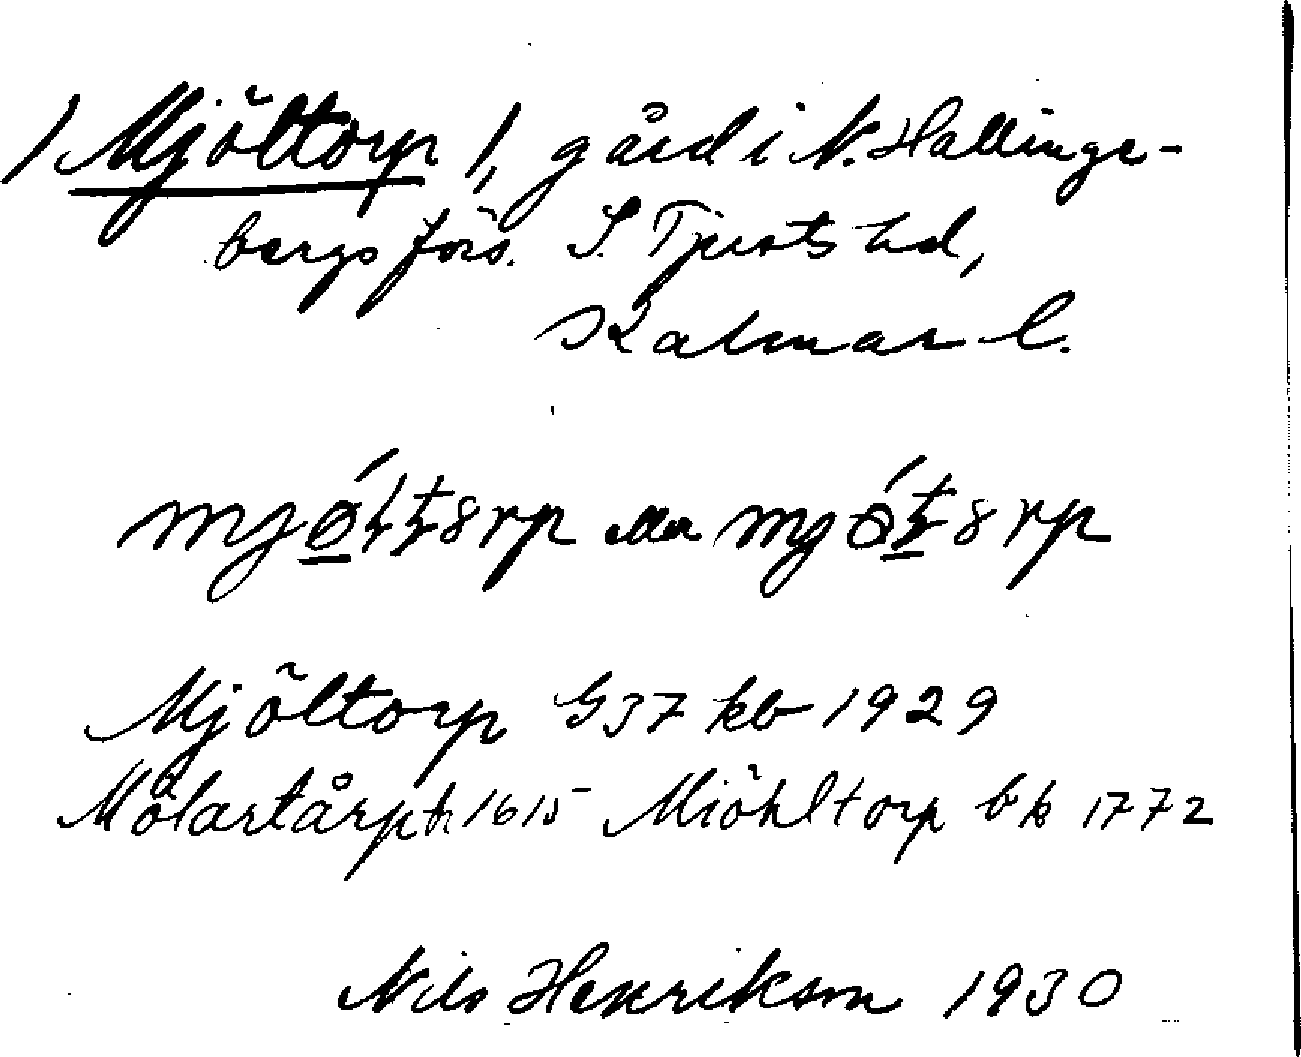 / Mjöltorp /, gård i N. Hallinge-
bergs förs. S. Tjusts hd,
Kalmar l.
eller
Mjöltorp G37 kb 1929
Mölartårp tr 1615 Miöhltorp bk 1772
Nils Henrikson 1930